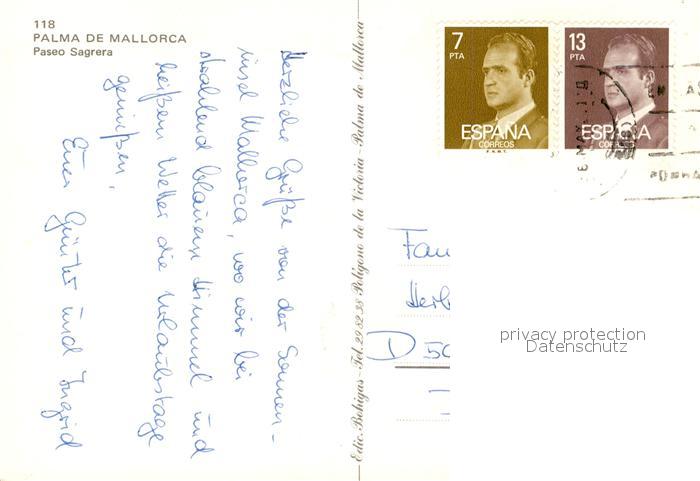 118
PALMA DE MALLORCA
Paseo Sagrera
Herzliche Grüße von der Sonnen-
insel Mallorca, wo wir bei
strahlend blauem Himmel und
heißem Wetter die Urlaubstage
genießen.
Eure Günter und Ingrid
Edic. Bohigas - Tel. 29 82 38 Polígono de la Victoria - Palma de Mallorca
7
PTA
ESPAÑA
CORREOS
F.N.M.T.
13
PTA
ESPAÑA
CORREOS
Fam
Herb
D 50
privacy protection
Datenschutz